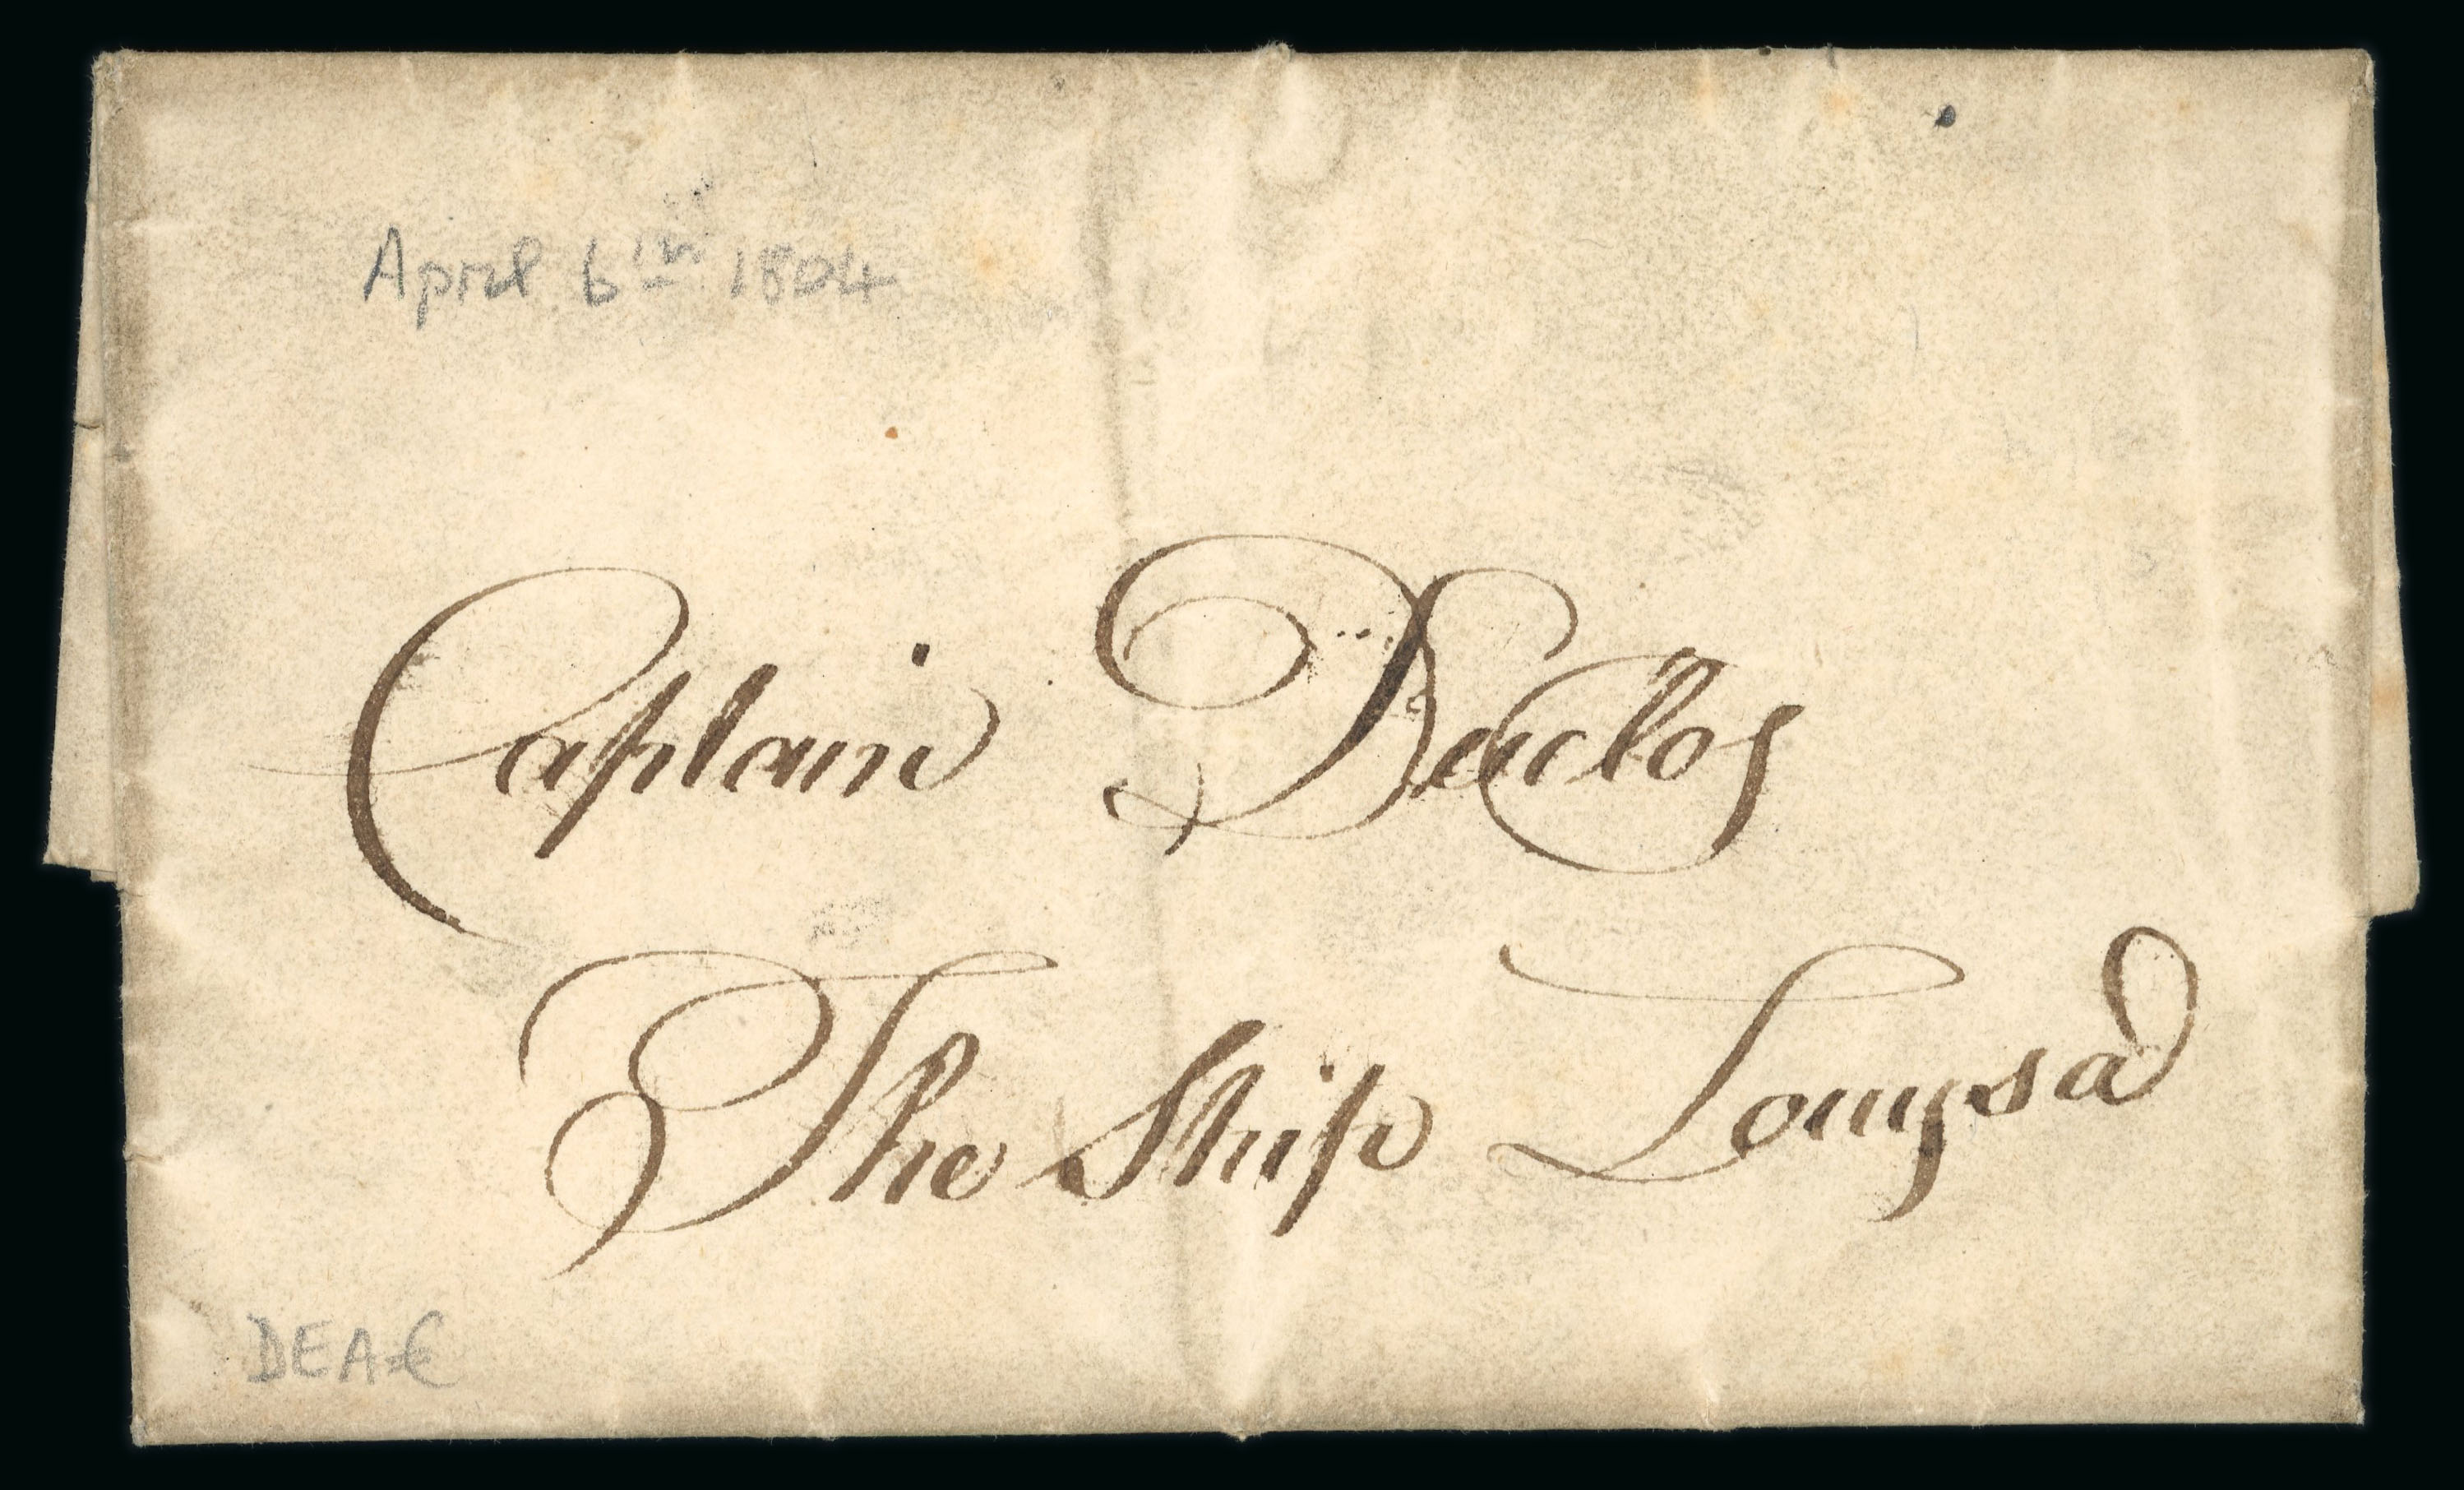 April 6th 1804
Captain Duclos
The Ship Louysa
DEA€